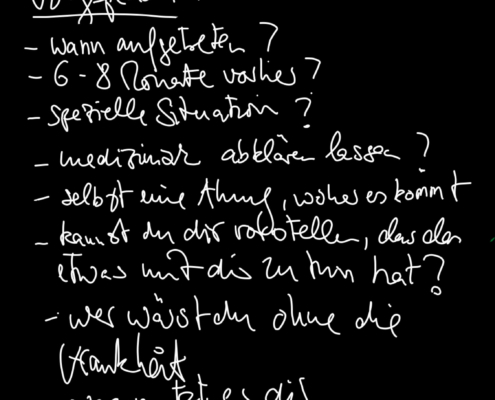 - wann aufgetreten ?
- 6 - 8 Monate vorher ?
- spezielle Situation ?
- medizinisch abklären lassen ?
- selbst eine Ahnung, woher es kommt
- kannst du dir vorstellen, dass das
etwas mit dir zu tun hat ?
- wer wärst du ohne die
Krankheit
es dir